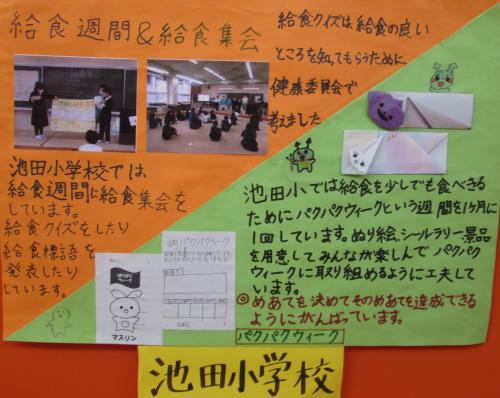 給食週間&給食集会
給食クイズは給食の良い
ところを知ってもらうために
健康委員会で
考えました
池田小学校では、
給食週間に給食集会を
しています。
給食クイズをしたり
給食標語を
発表したり
しています。
池田小では給食を少しでも食べきる
ためにパクパクウィークという週間を1ヶ月に
1回しています。ぬり絵、シールラリー、景品
を用意してみんなが楽しんでパクパク
ウィークに取り組めるように工夫して
います。
◎めあてを決めてそのめあてを達成できる
ようにがんばっています。
パクパクウィーク
ぱくぱく
ウィーク
マスリン
パクパクウィーク
池田小学校